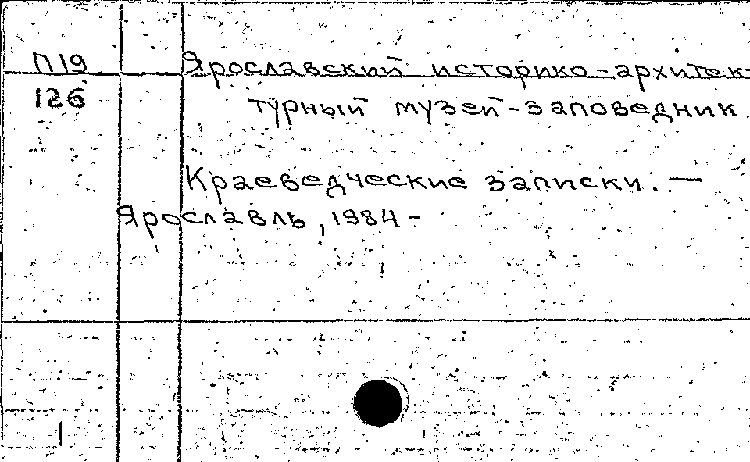 П19
126
Ярославский историко-архитек-
турный музей-заповедник.
Краеведческие записки. —
Ярославль, 1984 -